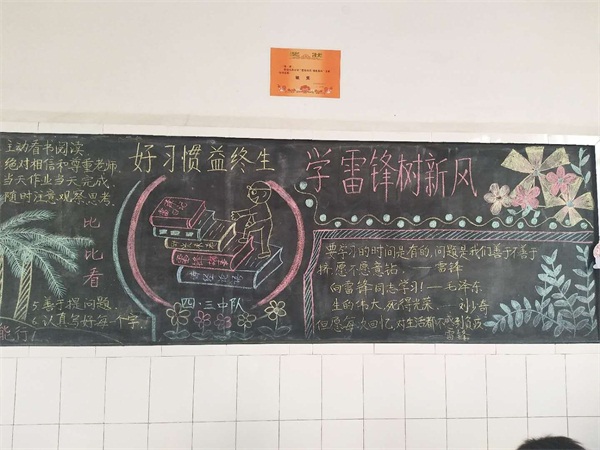 主动看书阅读
绝对相信和尊重老师
当天作业当天完成
随时注意观察思考
比
比
看
5.善于提问题
6.认真写好每个字
能行!
好习惯益终生
四·三中队
学雷锋树新风
要学习的时间是有的,问题是我们善于不善于
挤,愿不愿意钻。——雷锋
向雷锋同志学习!——毛泽东
生的伟大,死得光荣。——刘少奇
但愿每次回忆,对生活都不感到负疚
雷锋
奖状